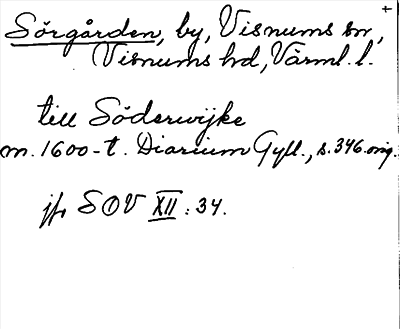 +
Sörgården, by, Visnums sn,
Visnums hd, Värml. l.
till Söderwijke
m. 1600-t. Diarium Gyll., s. 346. orig.
jfr SOV XII : 34.